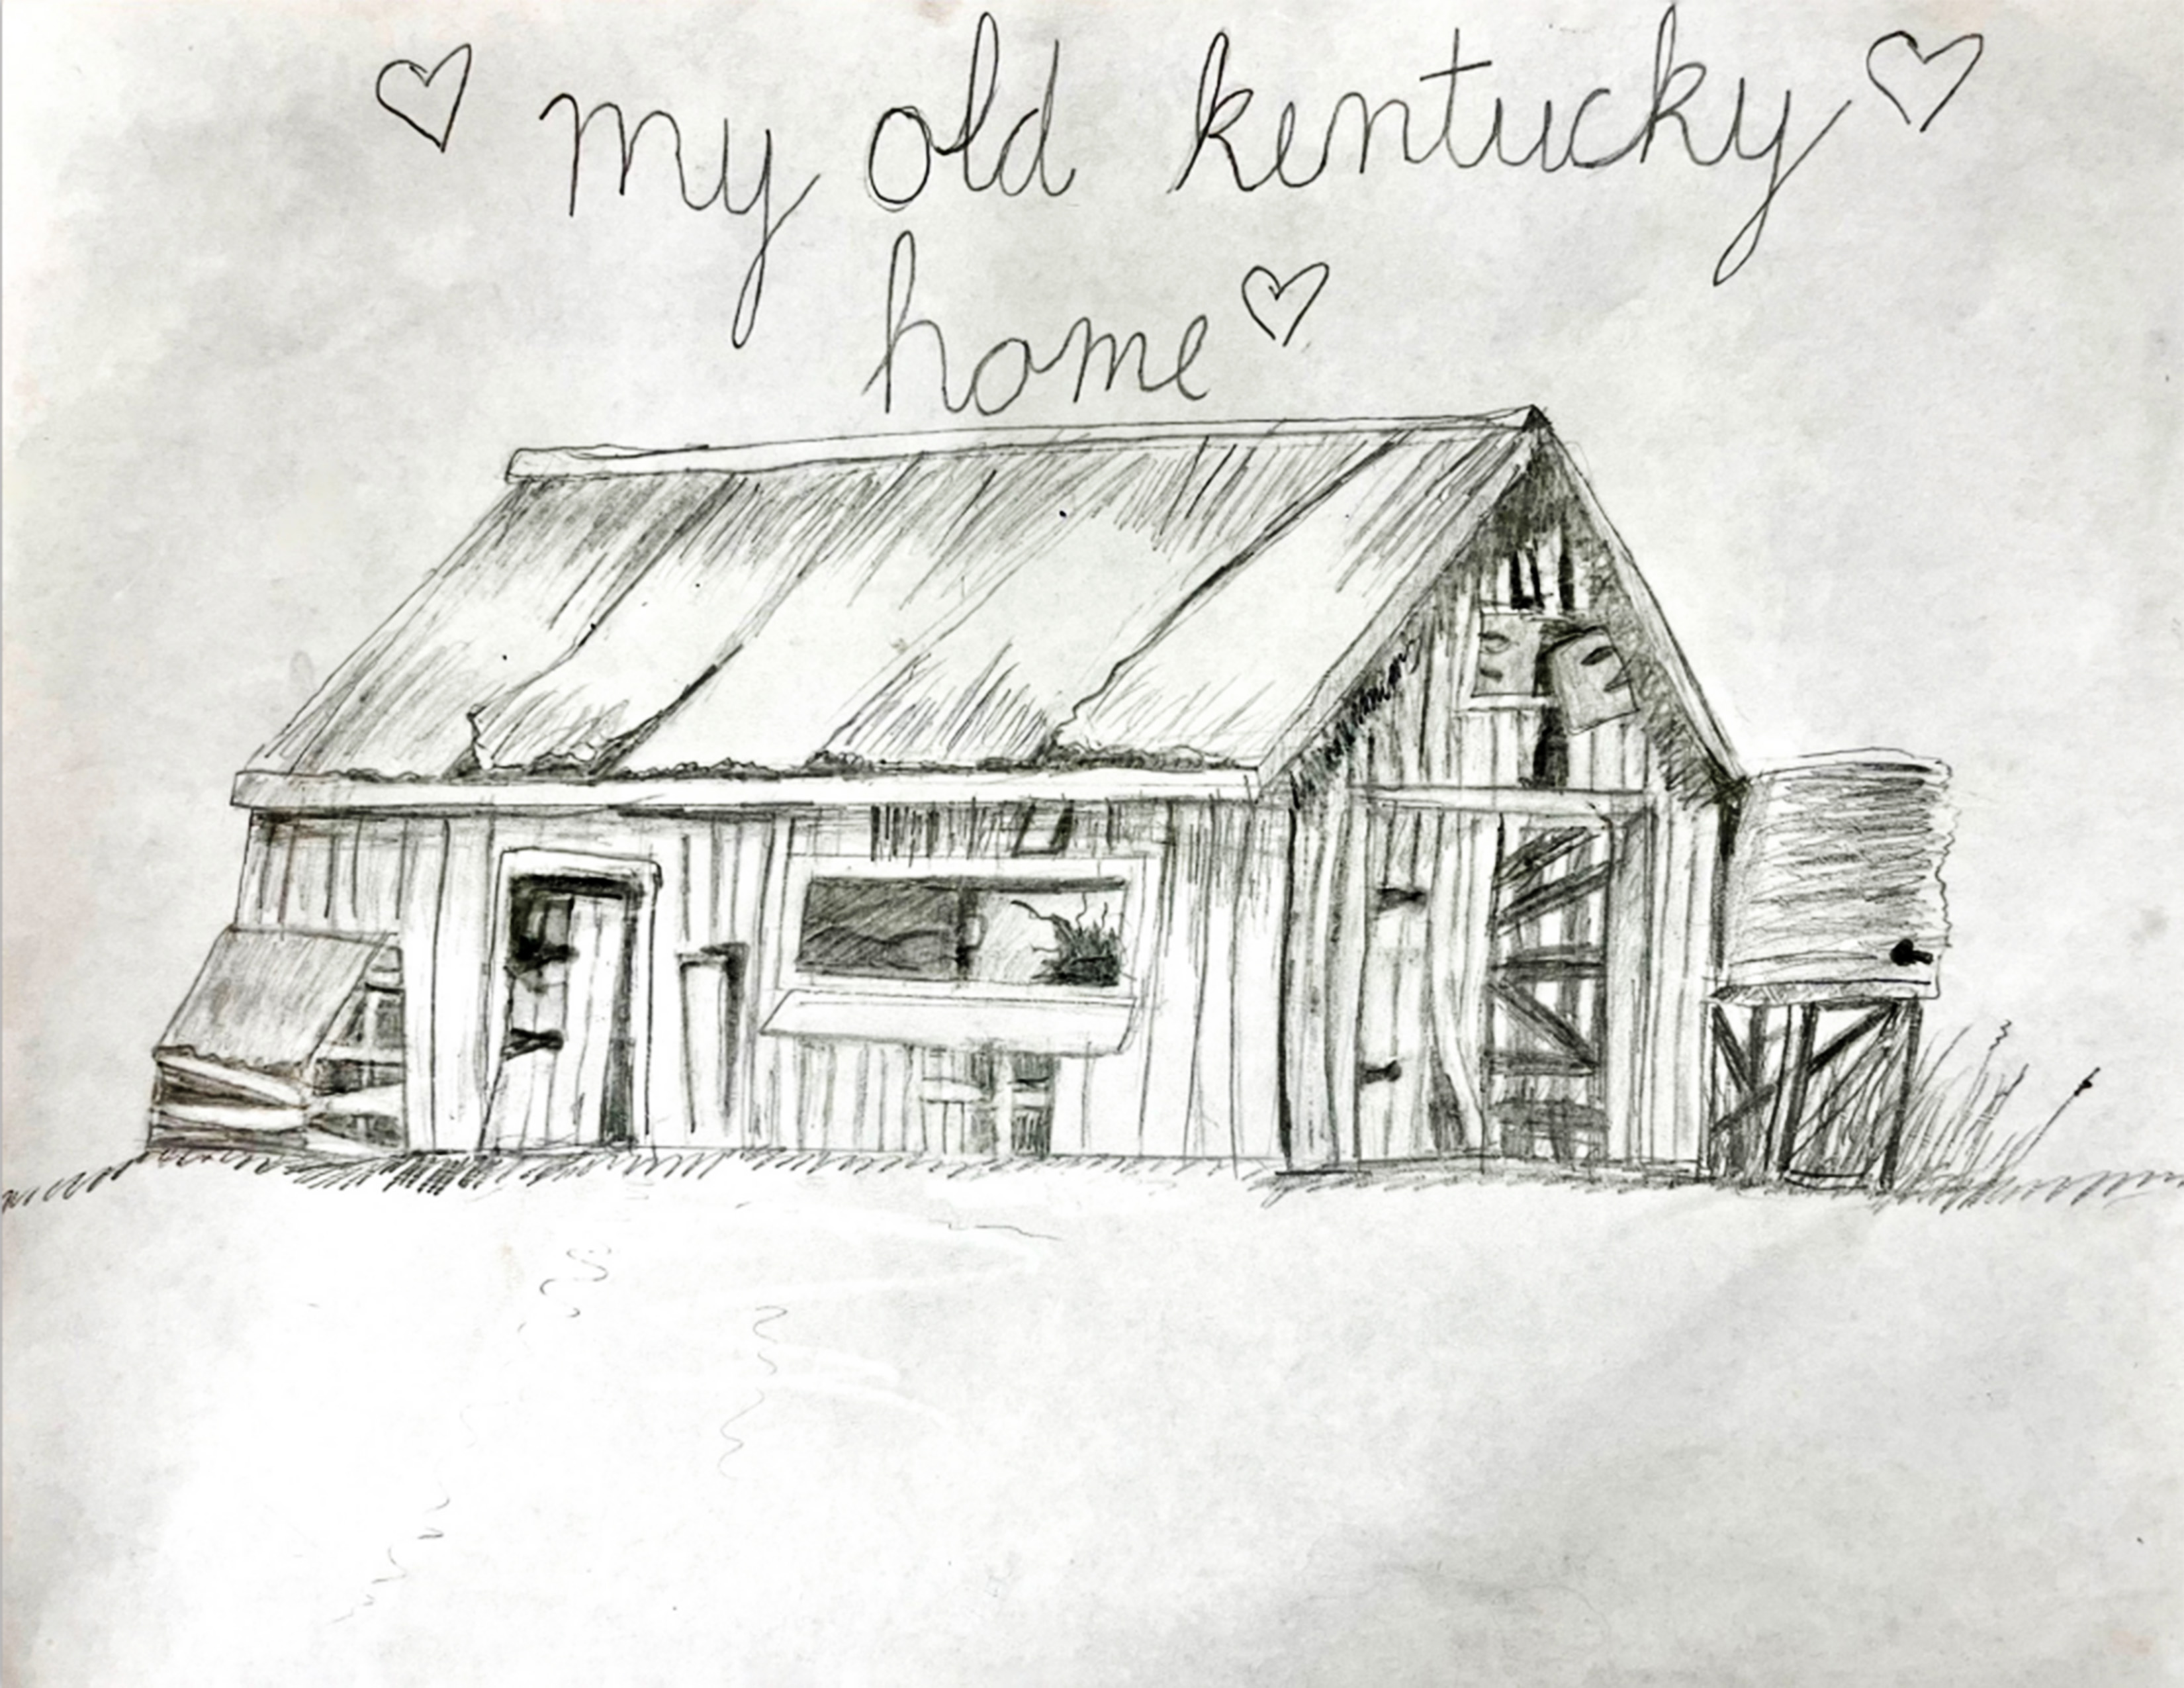 ♡ my old kentucky ♡
home ♡